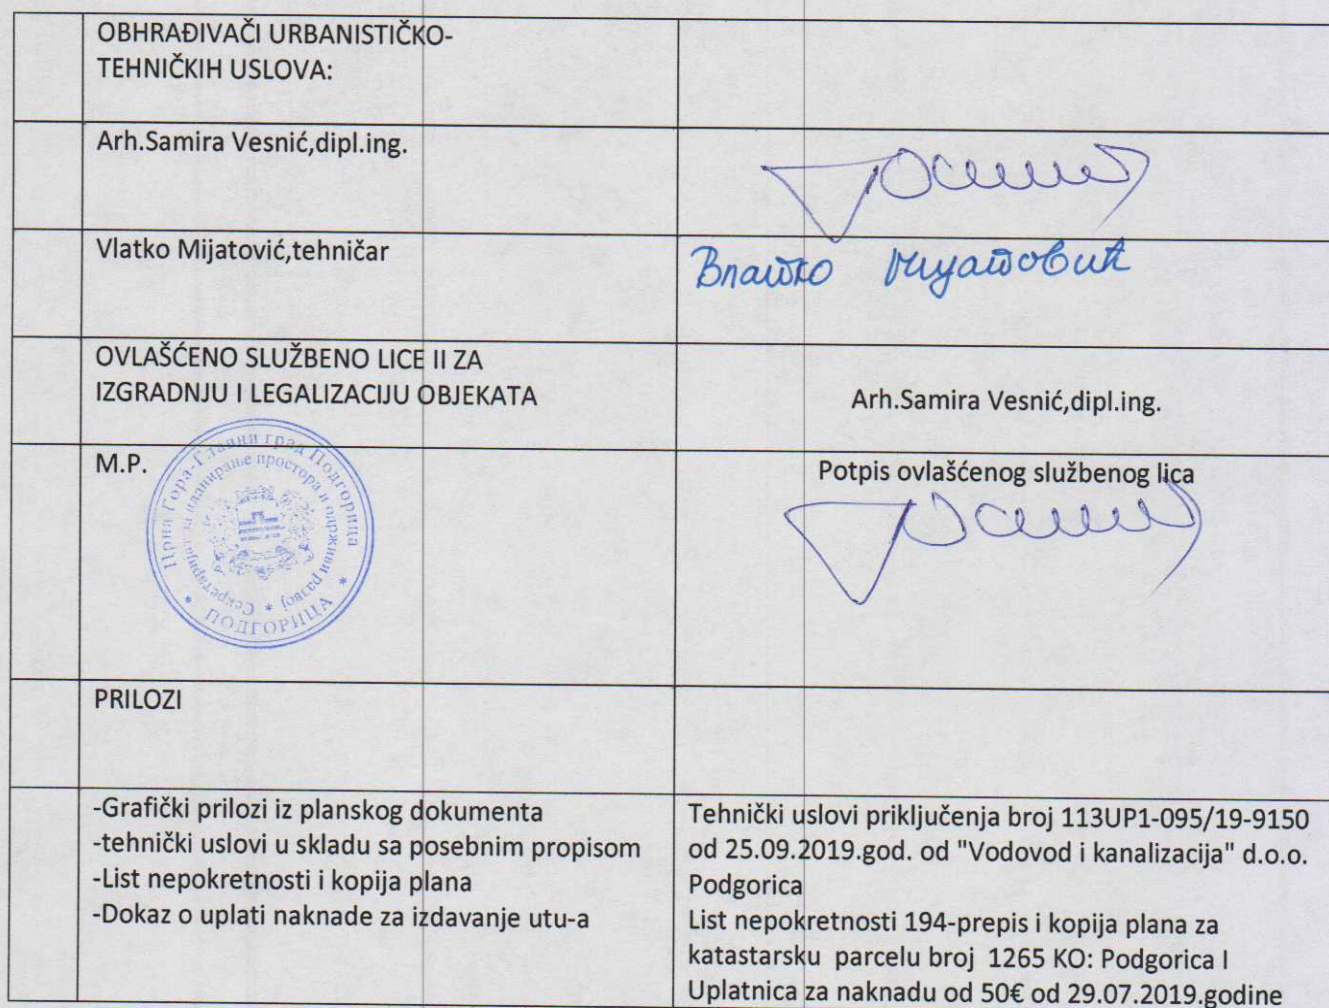 OBHRAĐIVAČI URBANISTIČKO-
TEHNIČKIH USLOVA:
Arh.Samira Vesnić,dipl.ing.
Vlatko Mijatović,tehničar
Влатко Мијатовић
OVLAŠĆENO SLUŽBENO LICE II ZA
IZGRADNJU I LEGALIZACIJU OBJEKATA
Arh.Samira Vesnić,dipl.ing.
M.P.
Црна Гора-Главни град Подгорица
Секретаријат за планирање простора и одрживи развој
ПОДГОРИЦА
Potpis ovlašćenog službenog lica
PRILOZI
-Grafički prilozi iz planskog dokumenta
-tehnički uslovi u skladu sa posebnim propisom
-List nepokretnosti i kopija plana
-Dokaz o uplati naknade za izdavanje utu-a
Tehnički uslovi priključenja broj 113UP1-095/19-9150
od 25.09.2019.god. od "Vodovod i kanalizacija" d.o.o.
Podgorica
List nepokretnosti 194-prepis i kopija plana za
katastarsku parcelu broj 1265 KO: Podgorica I
Uplatnica za naknadu od 50€ od 29.07.2019.godine